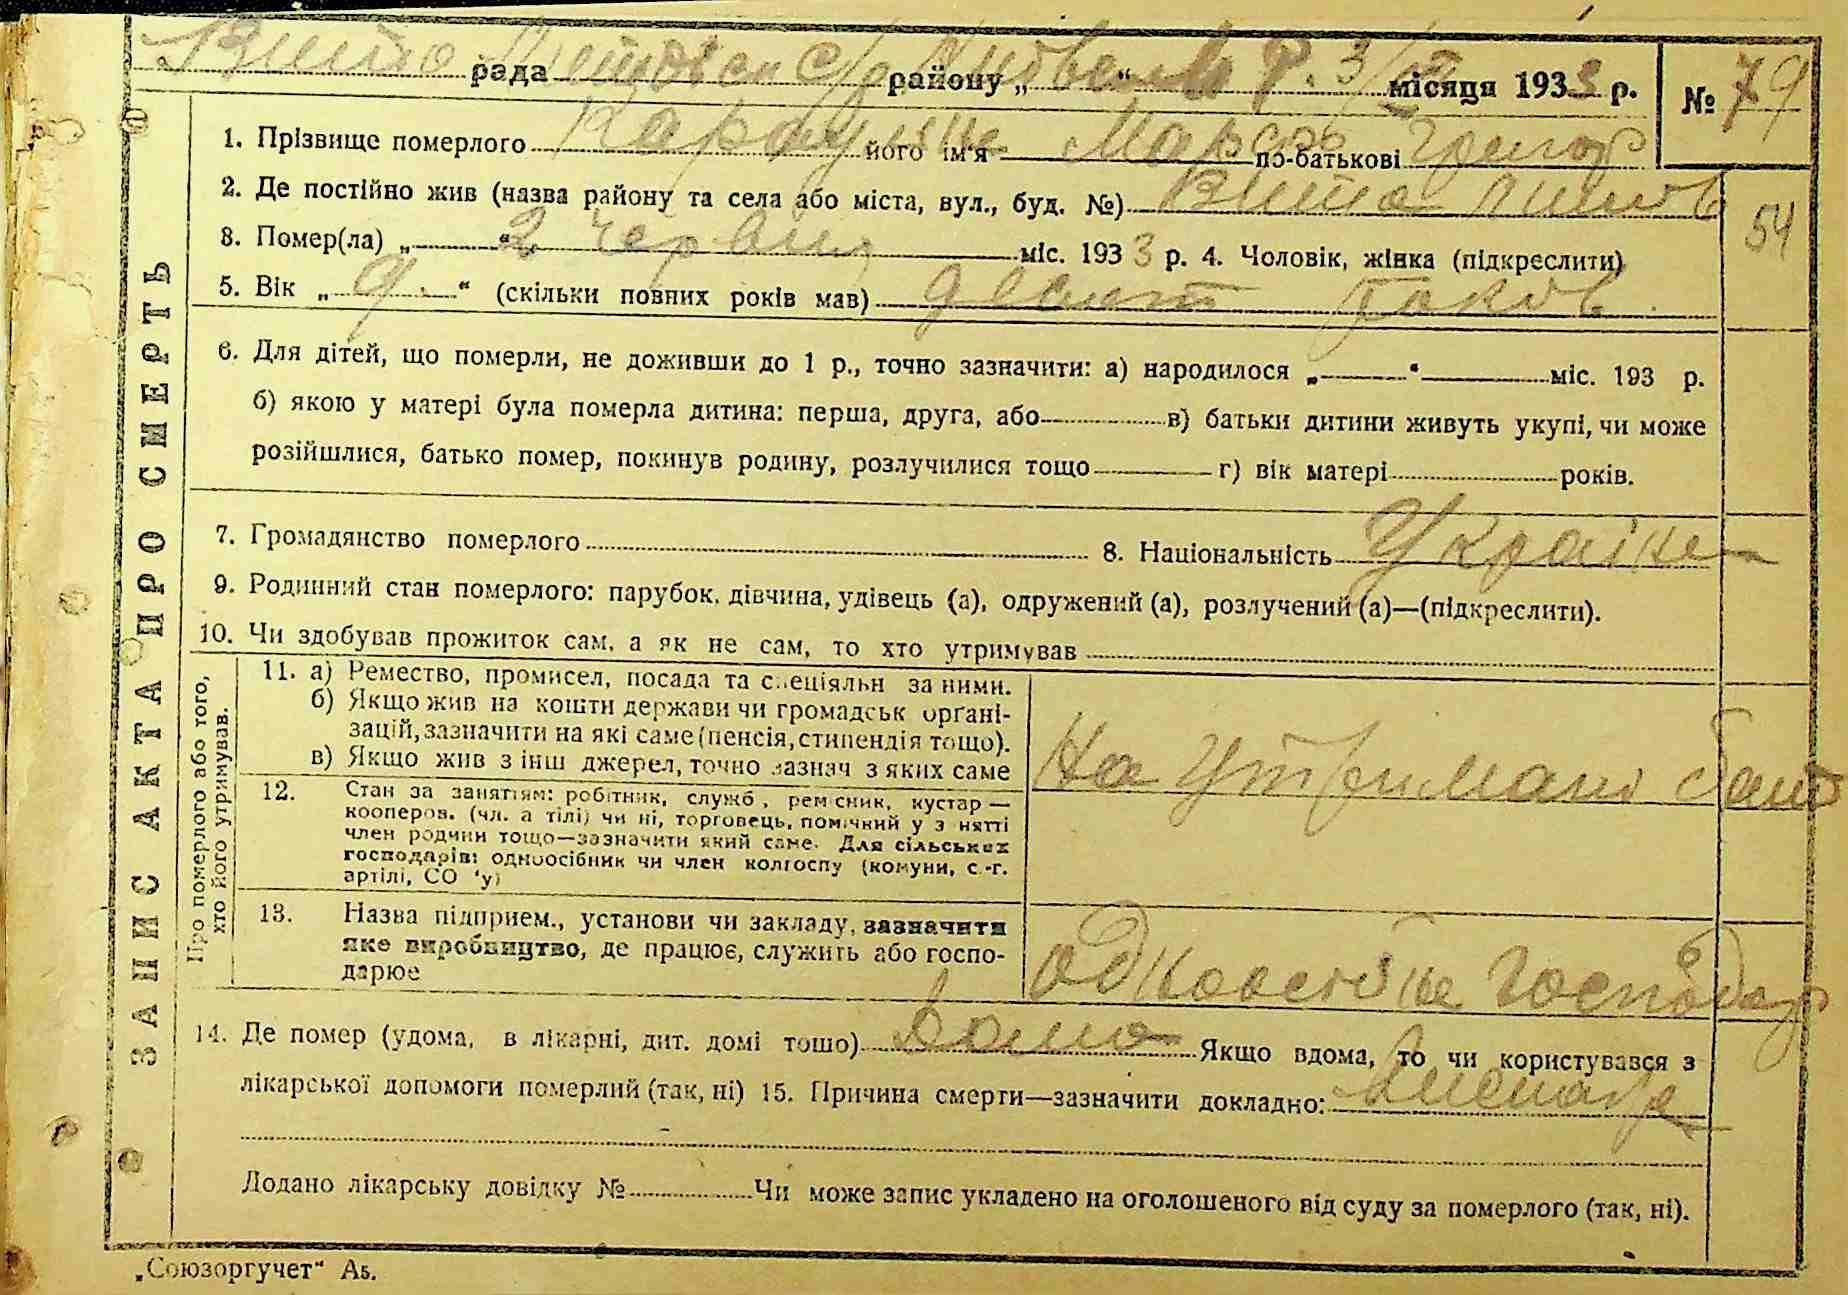 рада району „ “ місяця 1933 р. № 79
1. Прізвище померлого його ім'я по-батькові Григор
2. Де постійно жив (назва району та села або міста, вул., буд. №) Вита
54
8. Помер(ла) „ 2 “ червня міс. 1933 р. 4. Чоловік, жінка (підкреслити)
5. Вік „ 9. “ (скільки повних років мав)
6. Для дітей, що померли, не доживши до 1 р., точно зазначити: а) народилося „ “ міс. 193 р.
б) якою у матері була померла дитина: перша, друга, або в) батьки дитини живуть укупі, чи може
розійшлися, батько помер, покинув родину, розлучилися тощо г) вік матері років.
7. Громадянство померлого 8. Національність Україне
9. Родинний стан померлого: парубок, дівчина, удівець (а), одружений (а), розлучений (а)—(підкреслити).
10. Чи здобував прожиток сам, а як не сам, то хто утримував
ЗАПИС АКТА ПРО СМЕРТЬ
Про померлого або того,
хто його утримував.
11. а) Ремество, промисел, посада та спеціяльн за ними.
б) Якщо жив на кошти держави чи громадськ органі-
зацій, зазначити на які саме (пенсія, стипендія тощо).
в) Якщо жив з інш джерел, точно зазнач з яких саме
На утримані бать
12. Стан за заняттям: робітник, служб, рем сник, кустар —
кооперов. (чл. а тілі) чи ні, торговець, помічний у з нятті
член родини тощо—зазначити який саме. Для сільських
господарів: одноосібник чи член колгоспу (комуни, с.-г.
артілі, СО 'у)
13. Назва підприєм., установи чи закладу, зазначити
яке виробництво, де працює, служить або госпо-
дарює
одноосібне господар
14. Де помер (удома, в лікарні, дит. домі тощо) Дома Якщо вдома, то чи користувався з
лікарської допомоги померлий (так, ні) 15. Причина смерти—зазначити докладно:
Додано лікарську довідку № Чи може запис укладено на оголошеного від суду за померлого (так, ні).
„Союзоргучет“ А5.